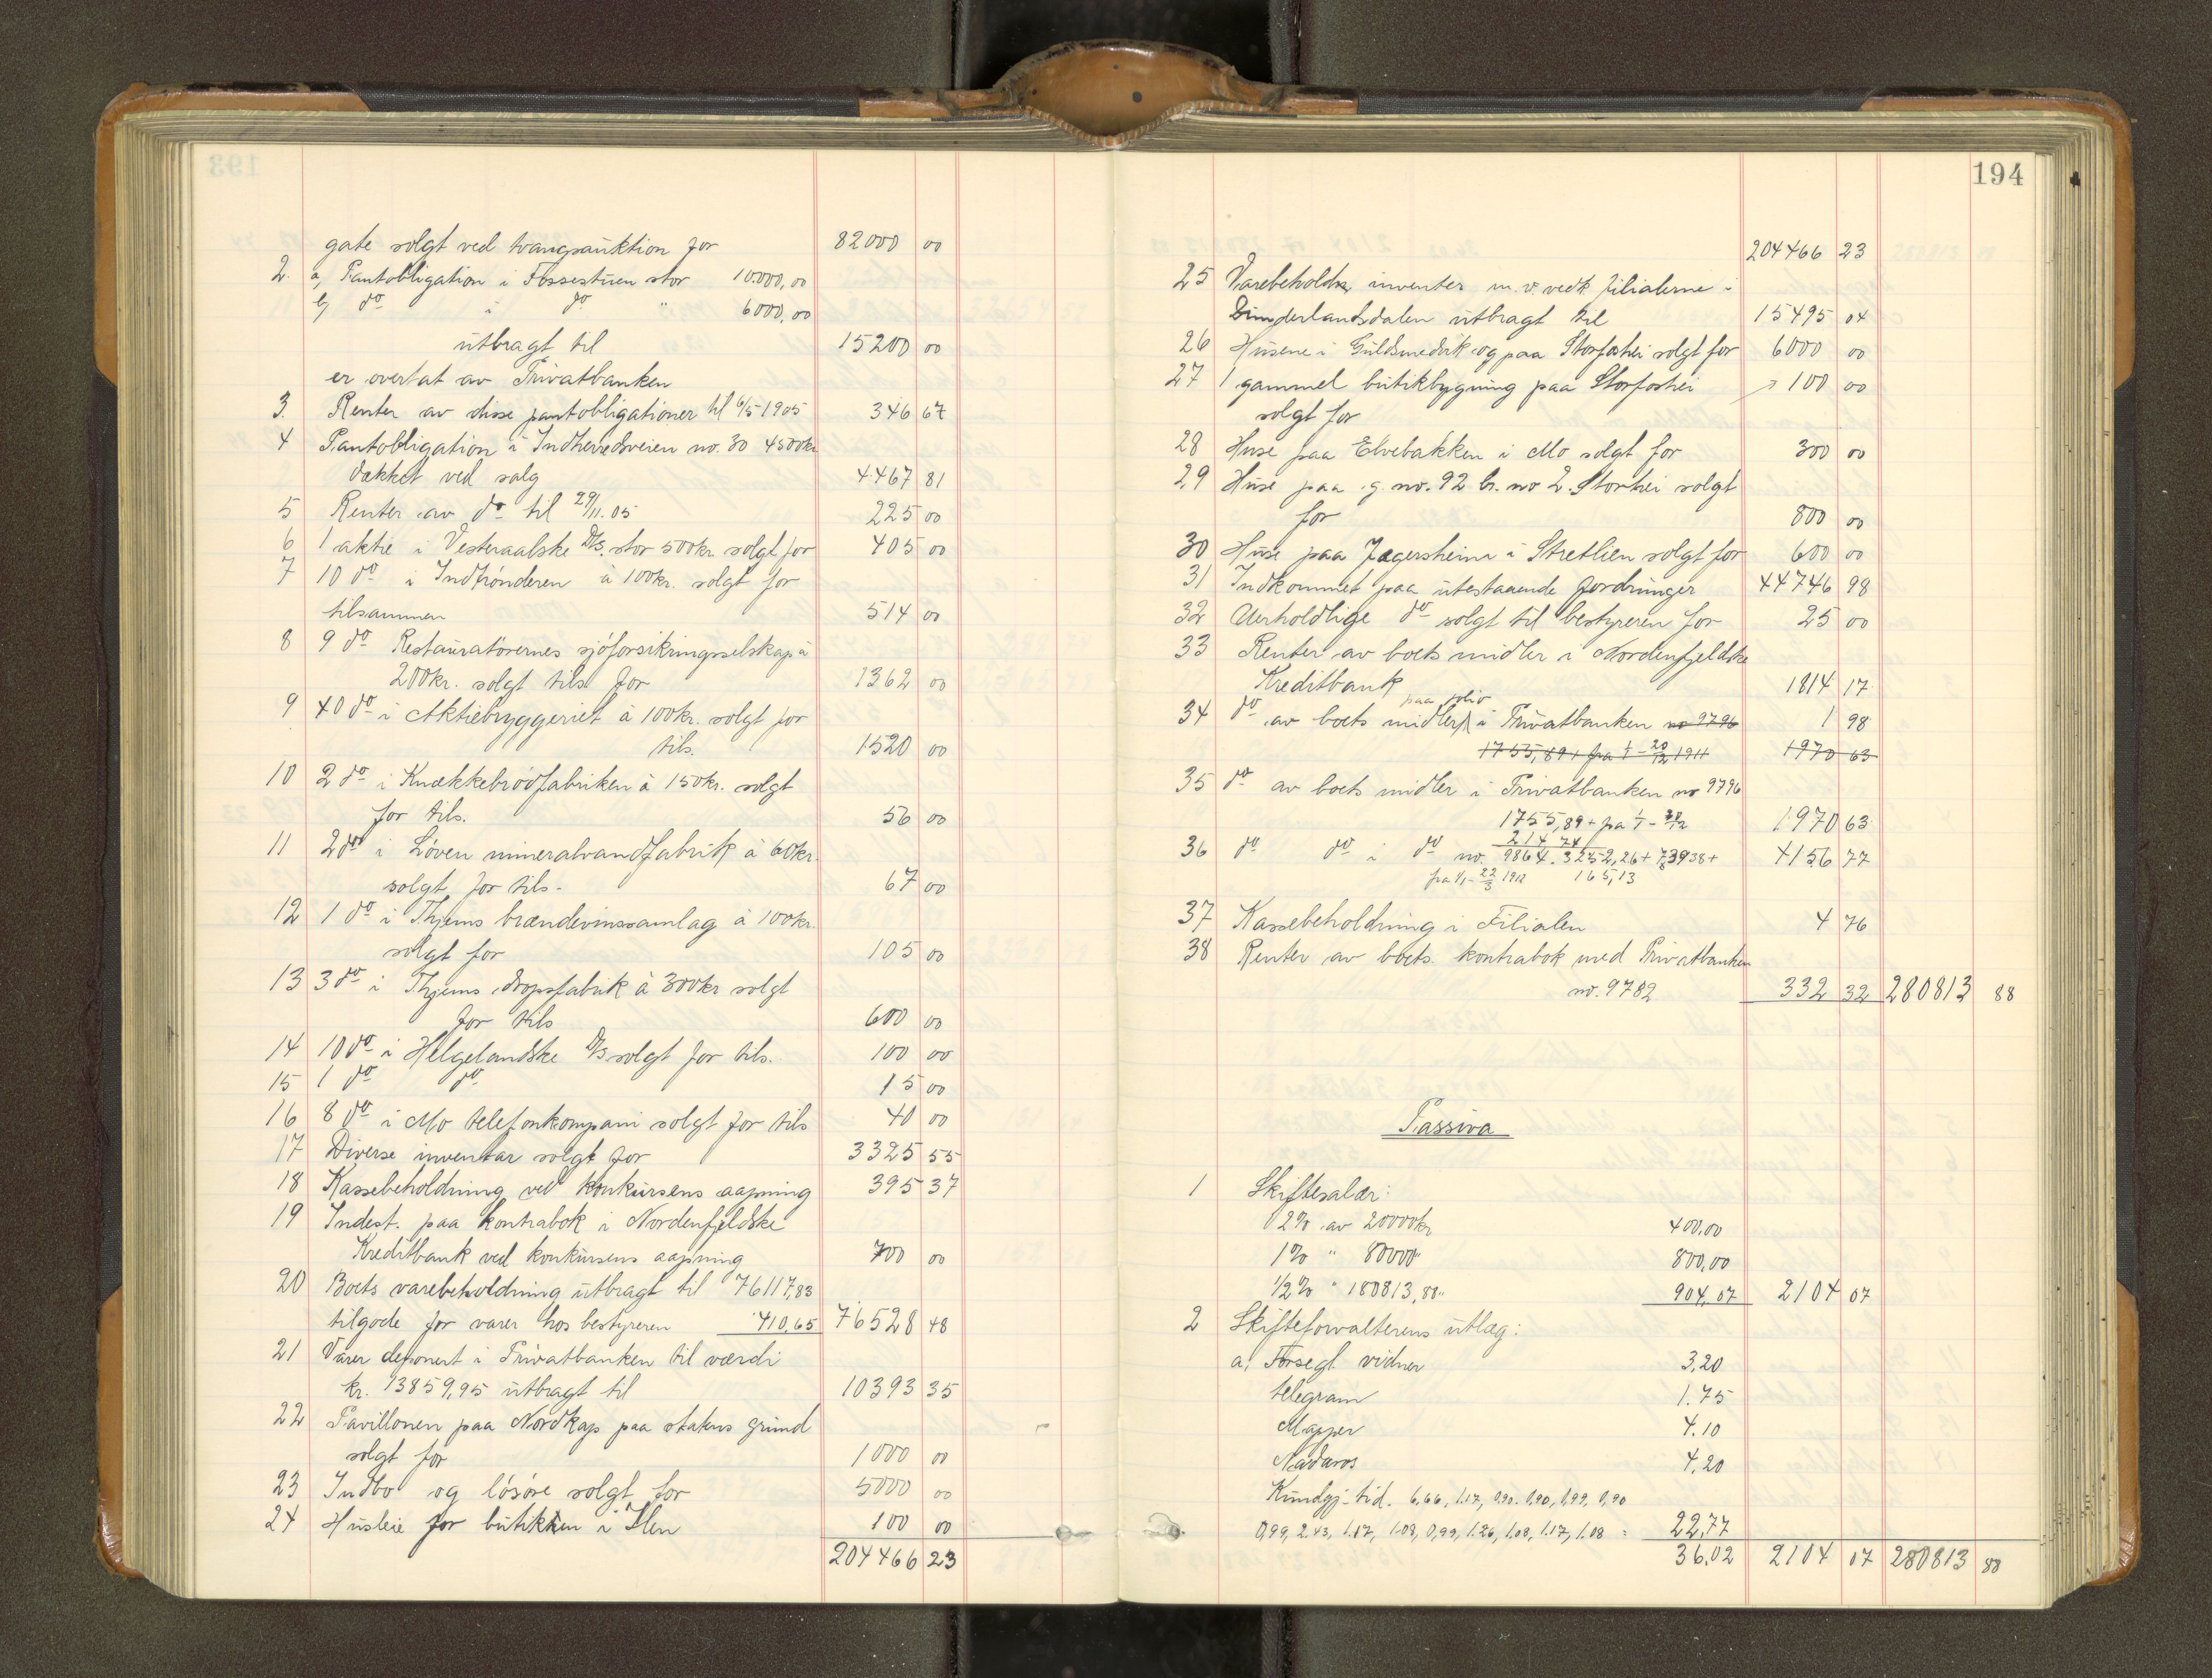 193
gate solgt ved tvangsauktion for 82000 00
2. a, Pantobligation i Fossestuen stor 10.000,00
b, do i do " 6000,00
utbragt til 15200 00
er overtat av Privatbanken
3. Renter av disse pantobligationer til 6/5 1905 346 67
4 Pantobligation i Indherredsveien no. 30 4500kr
dækket ved salg 4467 81
5 Renter av do til 29/11.05 225 00
6 1 aktie i Vesteraalske D/s. stor 500kr. solgt for 405 00
7 10 do i Indtrønderen à 100kr. solgt for
tilsammen 514 00
8 9 do Restauratørernes sjøforsikringsselskap à
200kr. solgt tils. for 1362 00
9 40 do i Aktiebryggeriet à 100kr. solgt for
tils. 1520 00
10 2 do i Knækkebrødfabriken à 150kr. solgt
for tils. 56 00
11 2 do i Løven mineralvandfabrik à 60kr.
solgt for tils. 67 00
12 1 do i Thjems brændevinssamlag à 100kr.
solgt for 105 00
13 3 do i Thjems dropsfabrik à 300kr solgt
for tils 600 00
14 10 do i Helgelandske D/s solgt for tils. 100 00
15 1 do do 15 00
16 8 do i Mo telefonkompani solgt for tils 40 00
17 Diverse inventar solgt for 3325 55
18 Kassebeholdning ved konkursens aapning 395 37
19 Indest. paa kontrabok i Nordenfjeldske
Kreditbank ved konkursens aapning 700 00
20 Boets varebeholdning utbragt til 76117,83
tilgode for varer hos bestyreren 410,65 76528 48
21 Varer deponert i Privatbanken til værdi
kr. 13859,95 utbragt til 10393 35
22 Pavillonen paa Nordkap paa statens grund
solgt for 1000 00
23 Indbo og løsøre solgt for 5000 00
24 Husleie for butikken i Ilen 100 00
204466 23
194
204466 23
25 Varebeholdn inventar m.v. vedk filialerne i
Dunderlandsdalen utbragt til 15495 04
26 Husene i Guldsmedvik og paa Storforhei solgt for 6000 00
27 1 gammel butikbygning paa Storforhei 100 00
solgt for
28 Huse paa Elvebakken i Mo solgt for 300 00
29 Huse paa g. no. 92 br. no 2. Storhei solgt
for 800 00
30 Huse paa Jægersheim i Stretlien solgt for 600 00
31 Indkommet paa utestaaende fordringer 44746 98
32 Uerholdlige do solgt til bestyreren for 25 00
33 Renter av boets midler i Nordenfjeldske
Kreditbank 1814 17
paa folio
34 do av boets midler i Privatbanken no 9796 1 98
1755,89+ fra 1/1 - 20/12 1911 1970 63
35 do av boets midler i Privatbanken no 9796
1755,89+ fra 1/1 - 20/12 1970 63
214 74
36 do do i do no. 9864. 3252,26+ 739 38+ 4156 77
fra 1/1 - 22/3 1912 165,13
37 Kassebeholdning i Filialen 4 76
38 Renter av boets kontrabok med Privatbanken
no. 9782 332 32 280813 88
Passiva
1 Skiftesalær:
2% av 20000kr 400,00
1% " 80000" 800,00
1/2% " 180813,88" 904,07 2104 07
2 Skifteforvalterens utlæg:
a. Forsegl. vidner 3,20
telegram 1.75
Mapper 4.10
Nidaros 4,20
Kundgj-tid. 6,66, 1.17, 0,90. 0,90, 0,99, 0,90
0,99, 2.43, 1.17, 1.08, 0,99, 1.26, 1.08, 1.17, 1.08 = 22,77
36,02 2104 07 280813 88